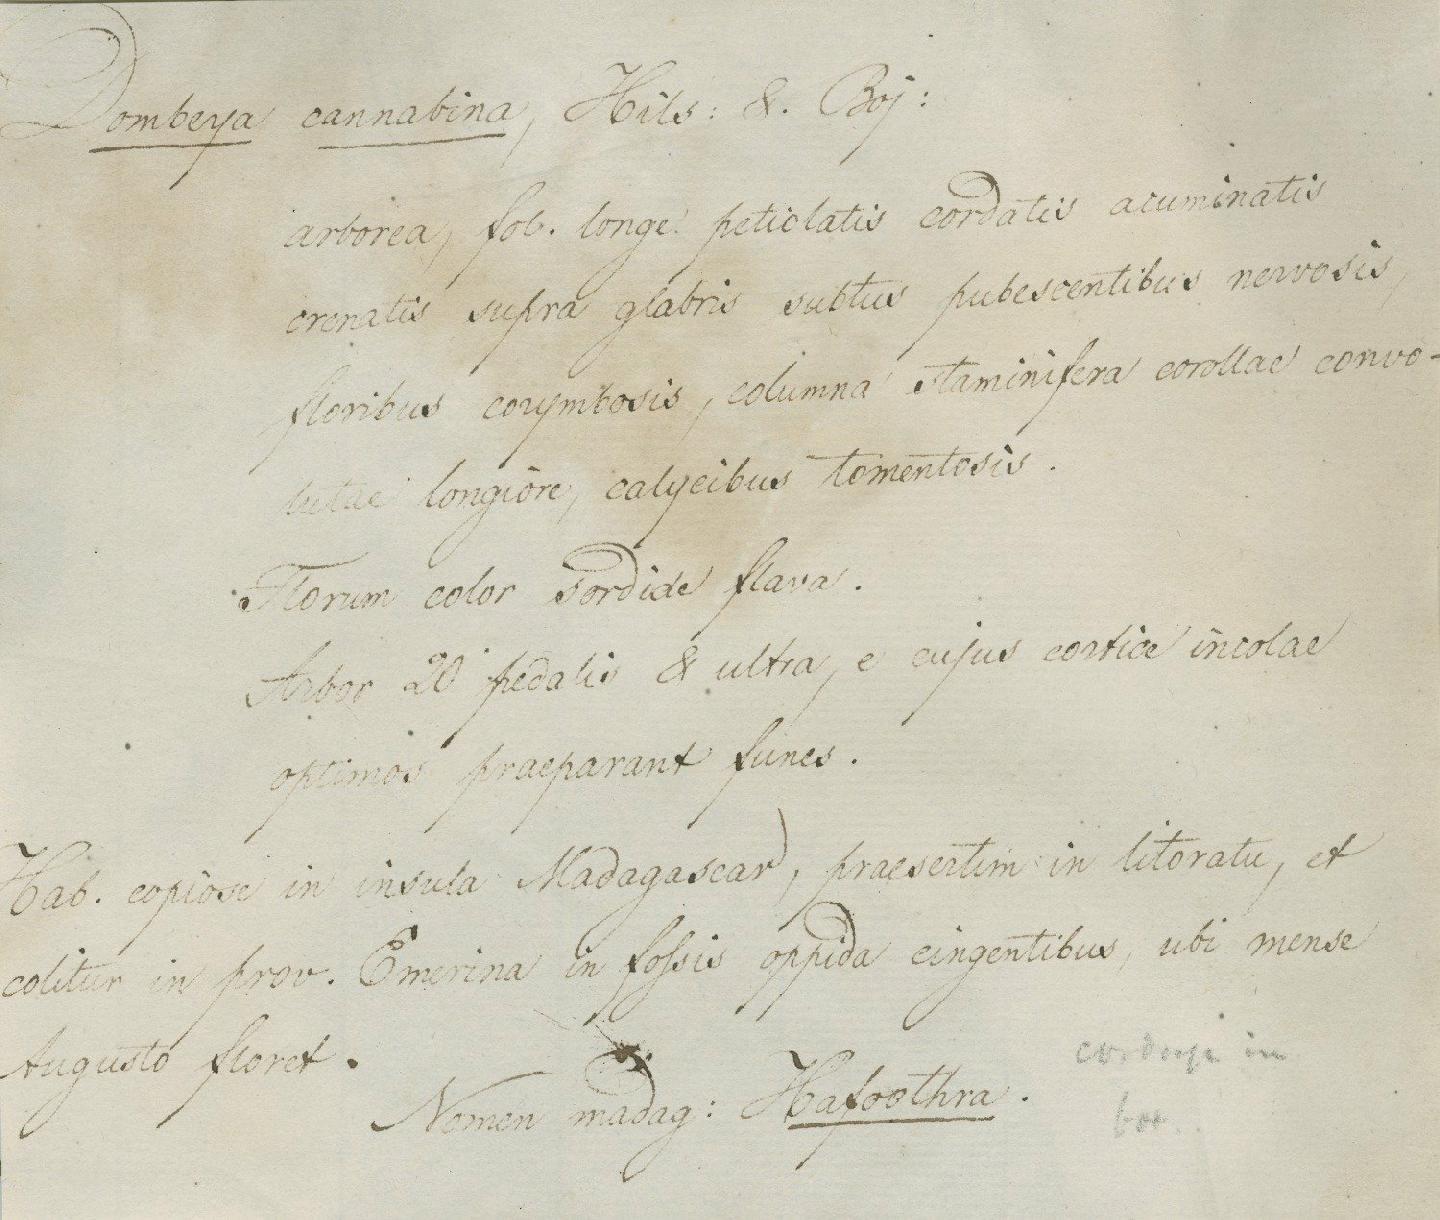 Dombeya cannabina, Hils: &. Boj:
arborea, fol. longe petiolatis cordatis acuminatis
crenatis supra glabris subtus pubescentibus nervosis,
floribus corymbosis, columna staminifera corollae convo-
lutae longiore, calycibus tomentosis.
Florum color sordide flava.
Arbor 20 pedalis & ultra, e cujus cortice incolae
optimos praeparant funes.
Hab. copiose in insula Madagascar, praesertim in litoratu, et
colitur in prov. Emerina in fossis oppida cingentibus, ubi mense
Augusto floret.
Nomen madag: Hafoothra.
in